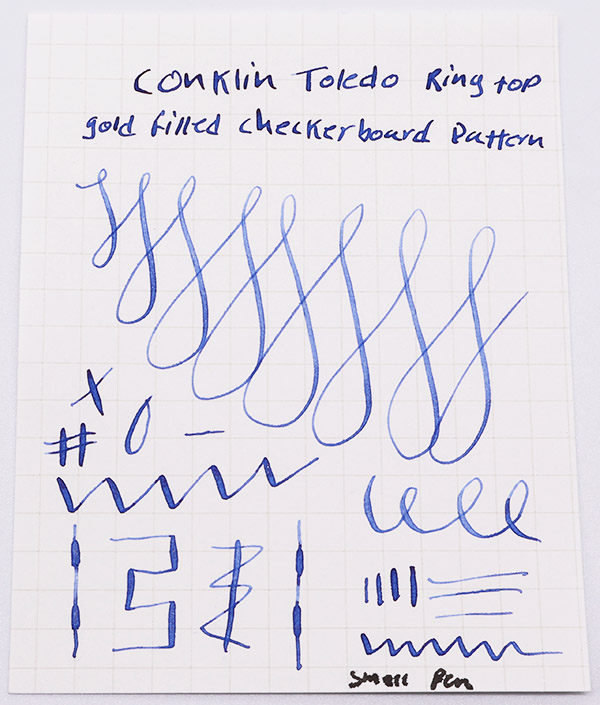 Conklin Toledo Ring top
gold filled checkerboard Pattern
X
# 0 –
Small Pen